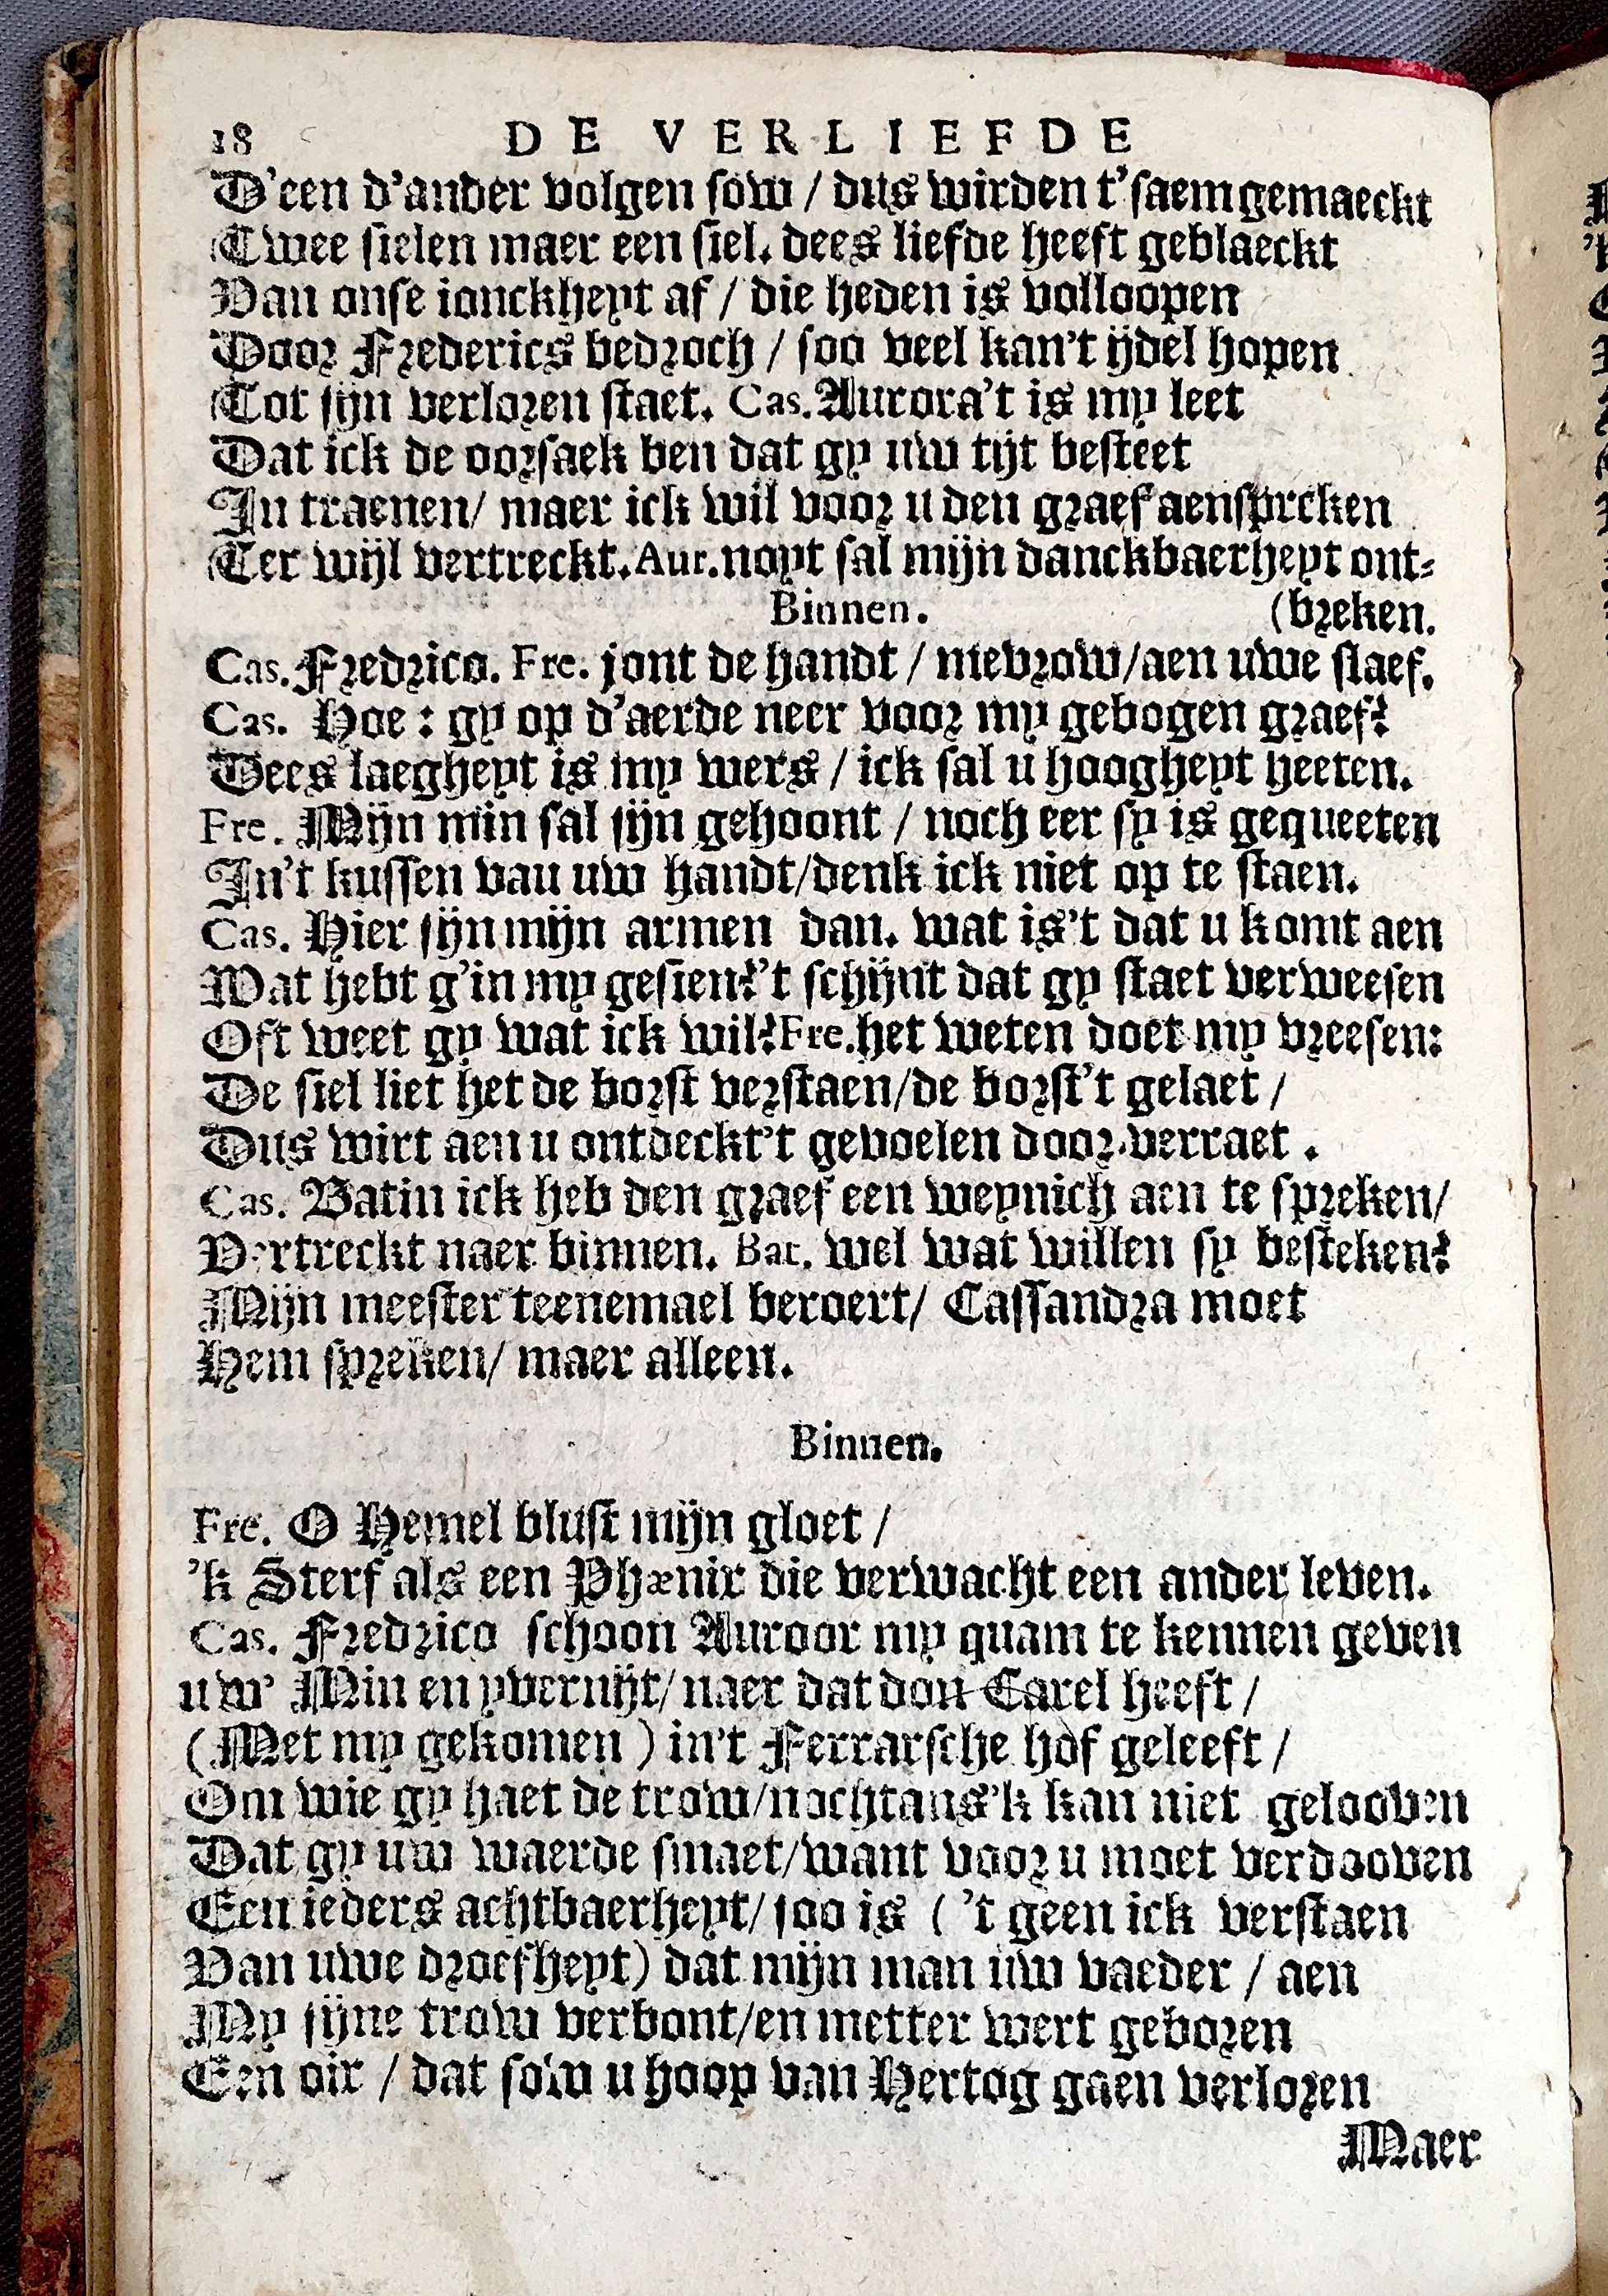 18 DE VERLIEFDE
D'een d'ander volgen sow / dus wirden t'saem gemaeckt
Twee sielen maer een siel. dees liefde heeft geblaeckt
Van onse ionckheyt af / die heden is volloopen
Door Frederics bedroch / soo veel kan't ijdel hopen
Tot sijn verloren staet. Cas. Aurora't is my leet
Dat ick de oorsaek ben dat gy uw tijt besteet
In traenen / maer ick wil voor u den graef aensprcken
Ter wijl vertreckt. Aur. noyt sal mijn danckbaerheyt ont-
Binnen. (breken.
Cas. Fredrico. Fre. jont de handt / mevrow / aen uwe slaef.
Cas. Hoe : gy op d'aerde neer voor my gebogen graef?
Dees laegheyt is my wers / ick sal u hoogheyt heeten.
Fre. Mijn min sal sijn gehoont / noch eer sy is gequeeten
In't kussen vau uw handt / denk ick niet op te staen.
Cas. Hier sijn mijn armen dan. wat is't dat u komt aen
Wat hebt g'in my gesien? 't schijnt dat gy staet verweesen
Oft weet gy wat ick wil? Fre. het weten doet my vreesen:
De siel liet het de borst verstaen / de borst't gelaet /
Dus wirt aen u ontdeckt't gevoelen door verraet .
Cas. Batin ick heb den graef een weynich aen te spreken /
Vertreckt naer binnen. Bat. wel wat willen sy besteken?
Mijn meester teenemael beroert / Cassandra moet
Hem spreken / maer alleen.
Binnen.
Fre. O Hemel blust mijn gloet /
'k Sterf als een Phænix die verwacht een ander leven.
Cas. Fredrico schoon Auroor my quam te kennen geven
uw Min en yvernijt / naer dat don Carel heeft /
(Met my gekomen ) in't Ferrarsche hof geleeft /
Om wie gy haet de trow / nochtans'k kan niet gelooven
Dat gy uw waerde smaet / want voor u moet verdooven
Een ieders achtbaerheyt / soo is ( 't geen ick verstaen
Van uwe droefheyt) dat mijn man uw vaeder / aen
My sijne trow verbont / en metter wert geboren
Een oir / dat sow u hoop van Hertog gaen verloren
Maer